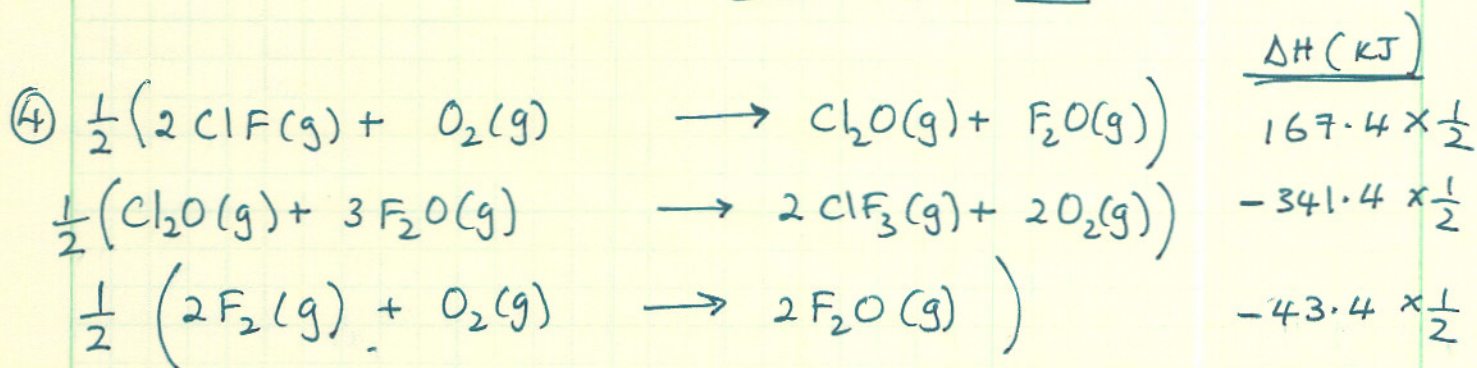 ΔH (KJ)
④ ½ (2 ClF(g) + O₂(g) → Cl₂O(g) + F₂O(g)) 167.4 × ½
½ (Cl₂O(g) + 3 F₂O(g) → 2 ClF₃(g) + 2O₂(g)) - 341.4 × ½
½ (2F₂(g) + O₂(g) → 2 F₂O (g)) - 43.4 × ½